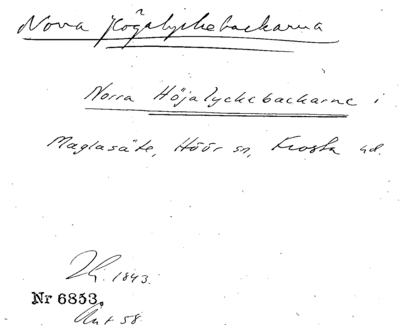 Norra Högalyckebackarna
Norra Höjalyckebackarne i
Maglasäte, Höör sn, Frosta hd.
1843.
Nr 6853.
Ant 58.